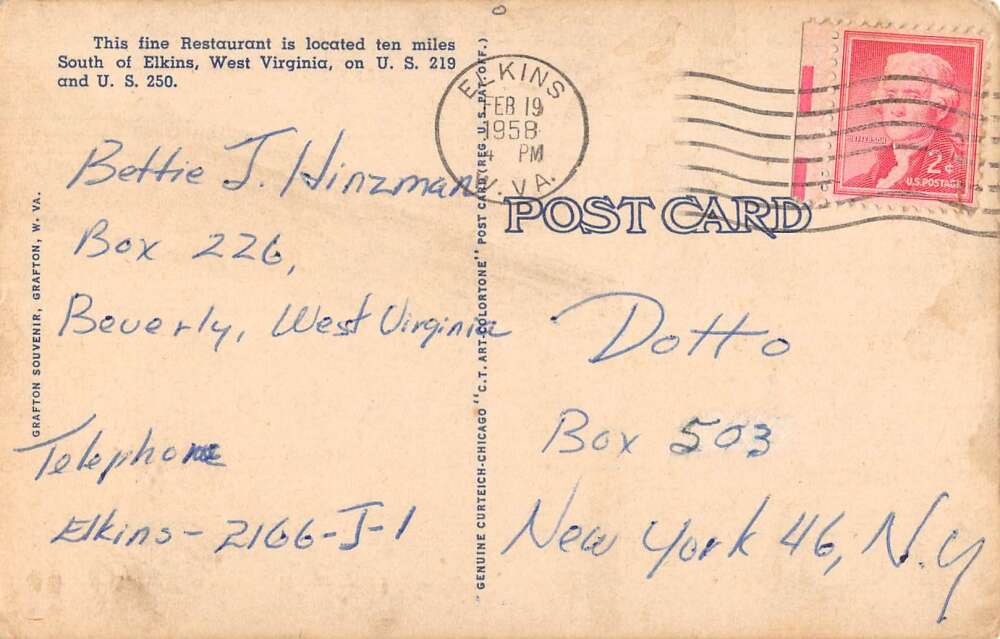 This fine Restaurant is located ten miles
South of Elkins, West Virginia, on U. S. 219
and U. S. 250.
Bettie J. Hinzman
Box 226,
Beverly, West Virginia
Telephone
Elkins-2166-J-1
GRAFTON SOUVENIR, GRAFTON, W. VA.
GENUINE CURTEICH-CHICAGO "C.T. ART-COLORTONE" POST CARD (REG. U.S. PAT. OFF.)
ELKINS
FEB 19
1958
4 PM
W.VA.
JEFFERSON
2¢
U.S. POSTAGE
POST CARD
Dotto
Box 503
New York 46, N.Y